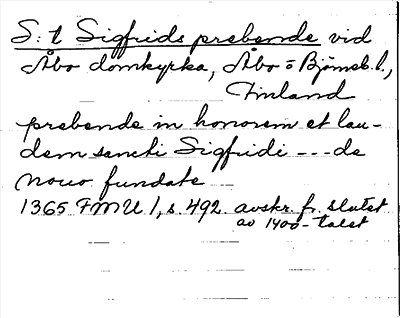 S:t Sigfrids prebende vid
Åbo domkyrka, Åbo o Björneb. l.,
Finland
prebende in honorem et lau-
dem sancti Sigfridi --- de
nouo fundate
1365 FMU 1, s. 492 avskr. fr. slutet
av 1400-talet